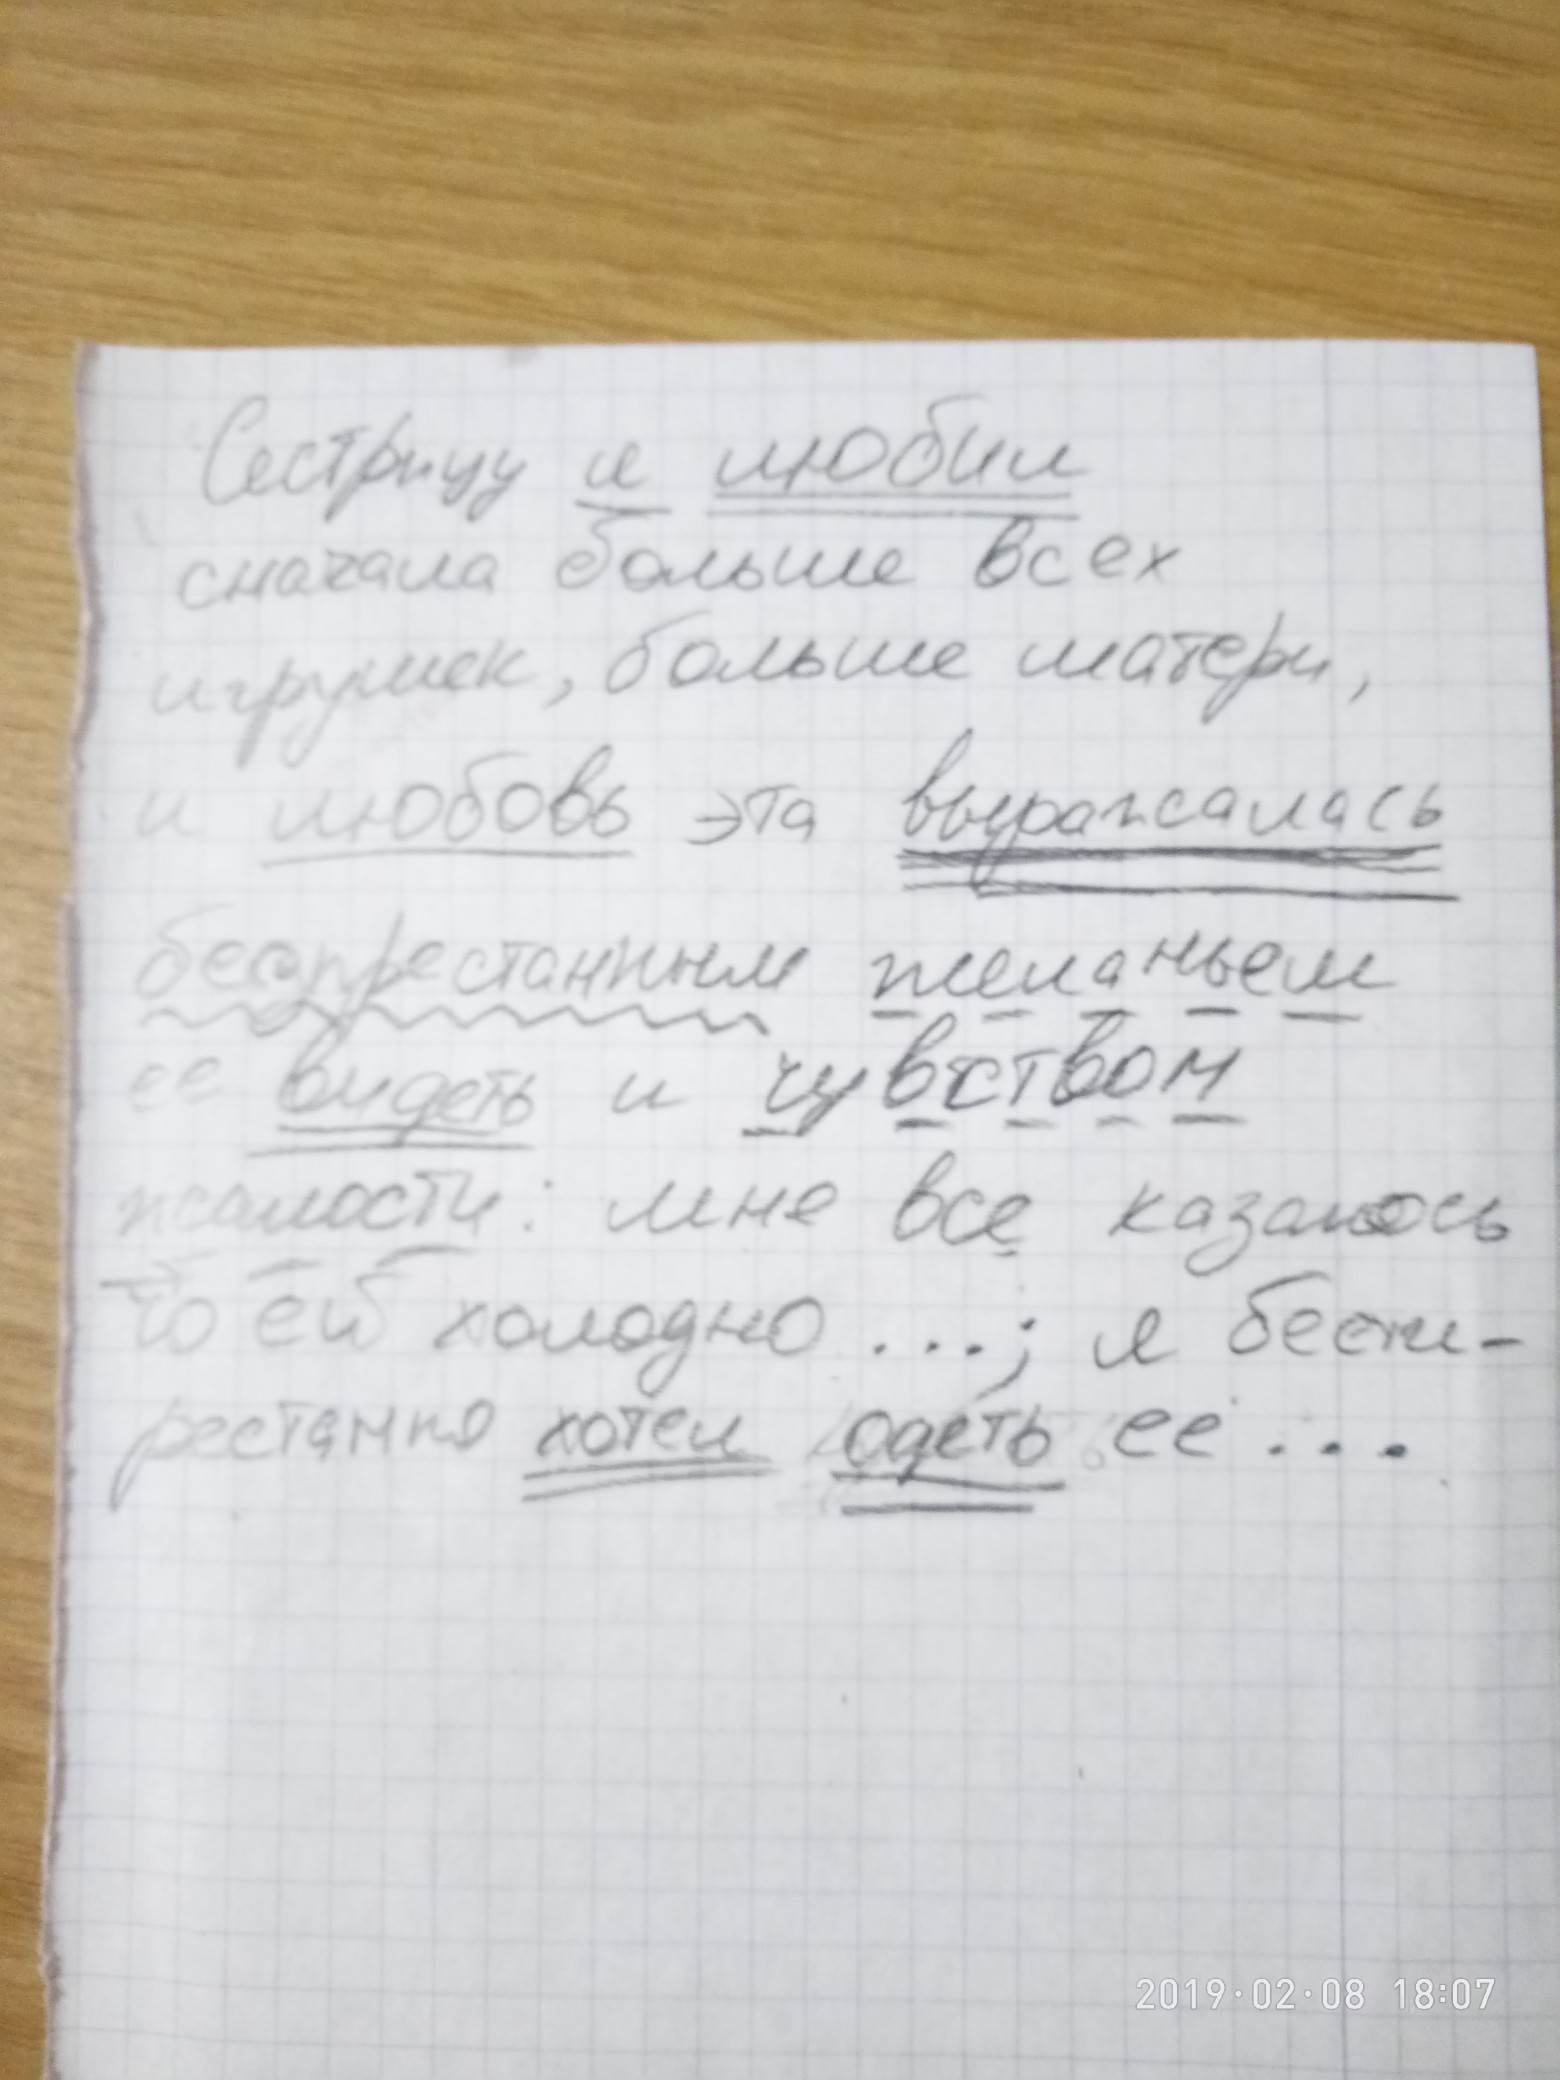 Сестрицу я любил
сначала больше всех
игрушек, больше матери,
и любовь эта выражалась
беспрестанным желаньем
ее видеть и чувством
жалости: мне все казалось
то ей холодно ...; я беспп-
рестанно хотел одеть ее ...
2019·02·08 18:07